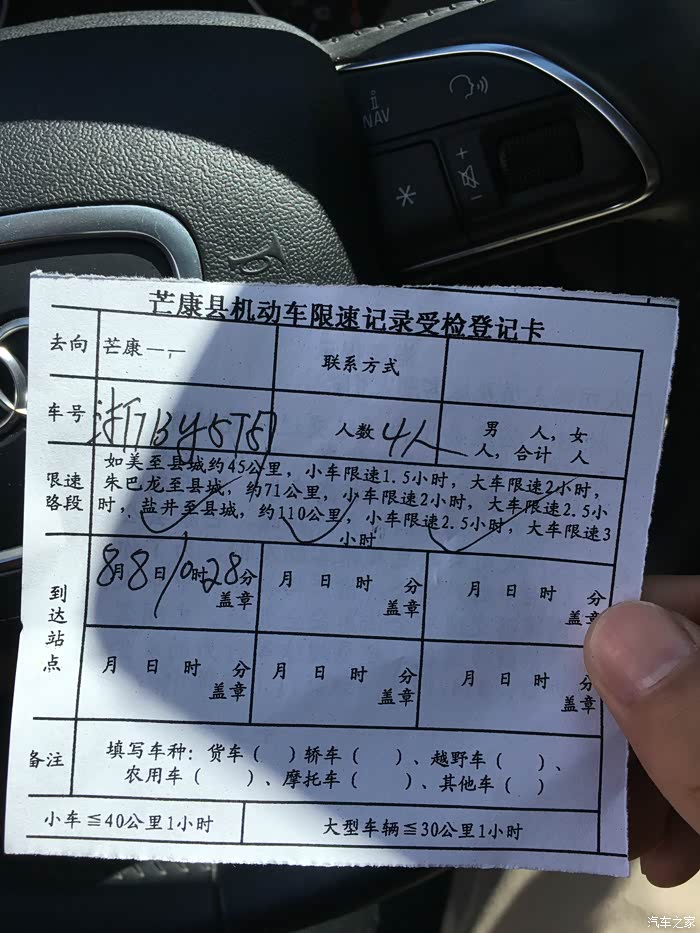 NAV
+
-
芒康县机动车限速记录受检登记卡
去向 芒康一,一 联系方式
车号 人数 4人 男 人,女 人,合计 人
限速路段 如美至县城约45公里,小车限速1.5小时,大车限速2小时,
朱巴龙至县城,约71公里,小车限速2小时,大车限速2.5小
时,盐井至县城,约110公里,小车限速2.5小时,大车限速3
小时
到达站点
8月8日10时28分 月 日 时 分 月 日 时 分
盖章 盖章 盖章
月 日 时 分 月 日 时 分 月 日 时 分
盖章 盖章 盖章
备注 填写车种:货车( )轿车( )、越野车( )、
农用车( )、摩托车( )、其他车( )
小车≦40公里1小时 大型车辆≦30公里1小时
汽车之家